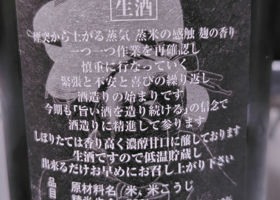 生酒
煙突から上がる蒸気 蒸米の感触 麹の香り
一つ一つ作業を再確認し
慎重に行なっていく
緊張と不安と喜びの繰り返し
酒造りの始まりです
今期も「旨い酒を造り続ける」の信念で
酒造りに精進して参ります
しぼりたては香り高く濃醇甘口に醸しております
生酒ですので低温貯蔵し
出来るだけお早めにお召し上がり下さい
品目
原材料名 米、米こうじ